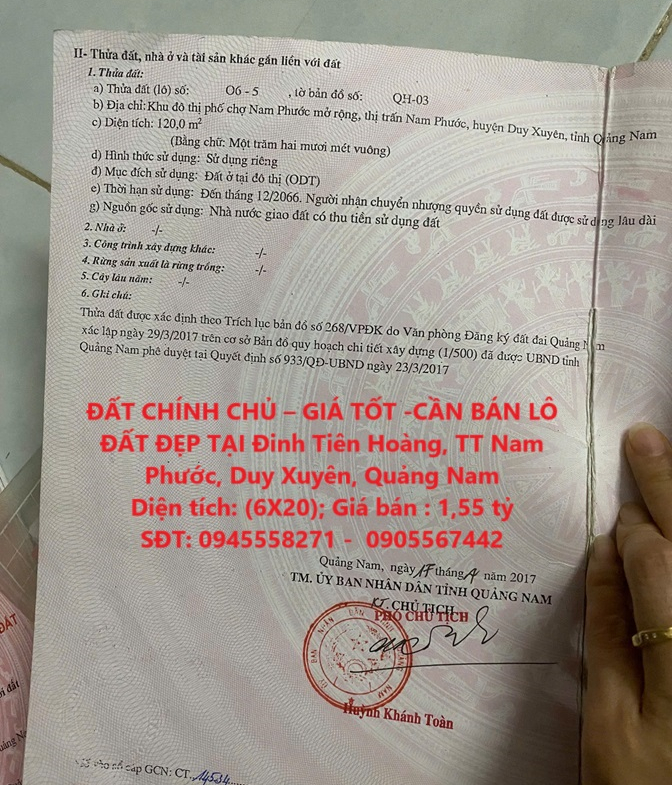 II- Thửa đất, nhà ở và tài sản khác gắn liền với đất
1. Thửa đất:
a) Thửa đất (lô) số: O6 - 5 , tờ bản đồ số: QH-03
b) Địa chỉ: Khu đô thị phố chợ Nam Phước mở rộng, thị trấn Nam Phước, huyện Duy Xuyên, tỉnh Quảng Nam
c) Diện tích: 120,0 m²
(Bằng chữ: Một trăm hai mươi mét vuông)
d) Hình thức sử dụng: Sử dụng riêng
đ) Mục đích sử dụng: Đất ở tại đô thị (ODT)
e) Thời hạn sử dụng: Đến tháng 12/2066. Người nhận chuyển nhượng quyền sử dụng đất được sử dụng lâu dài
g) Nguồn gốc sử dụng: Nhà nước giao đất có thu tiền sử dụng đất
2. Nhà ở: -/-
3. Công trình xây dựng khác: -/-
4. Rừng sản xuất là rừng trồng: -/-
5. Cây lâu năm: -/-
6. Ghi chú:
Thửa đất được xác định theo Trích lục bản đồ số 268/VPĐK do Văn phòng Đăng ký đất đai Quảng Nam
xác lập ngày 29/3/2017 trên cơ sở Bản đồ quy hoạch chi tiết xây dựng (1/500) đã được UBND tỉnh
Quảng Nam phê duyệt tại Quyết định số 933/QĐ-UBND ngày 23/3/2017
ĐẤT CHÍNH CHỦ – GIÁ TỐT -CẦN BÁN LÔ
ĐẤT ĐẸP TẠI Đinh Tiên Hoàng, TT Nam
Phước, Duy Xuyên, Quảng Nam
Diện tích: (6X20); Giá bán : 1,55 tỷ
SĐT: 0945558271 - 0905567442
Quảng Nam, ngày 17 tháng 4 năm 2017
TM. ỦY BAN NHÂN DÂN TỈNH QUẢNG NAM
KT. CHỦ TỊCH
PHÓ CHỦ TỊCH
Huỳnh Khánh Toàn
vào sổ cấp GCN: CT.
ĐẤT